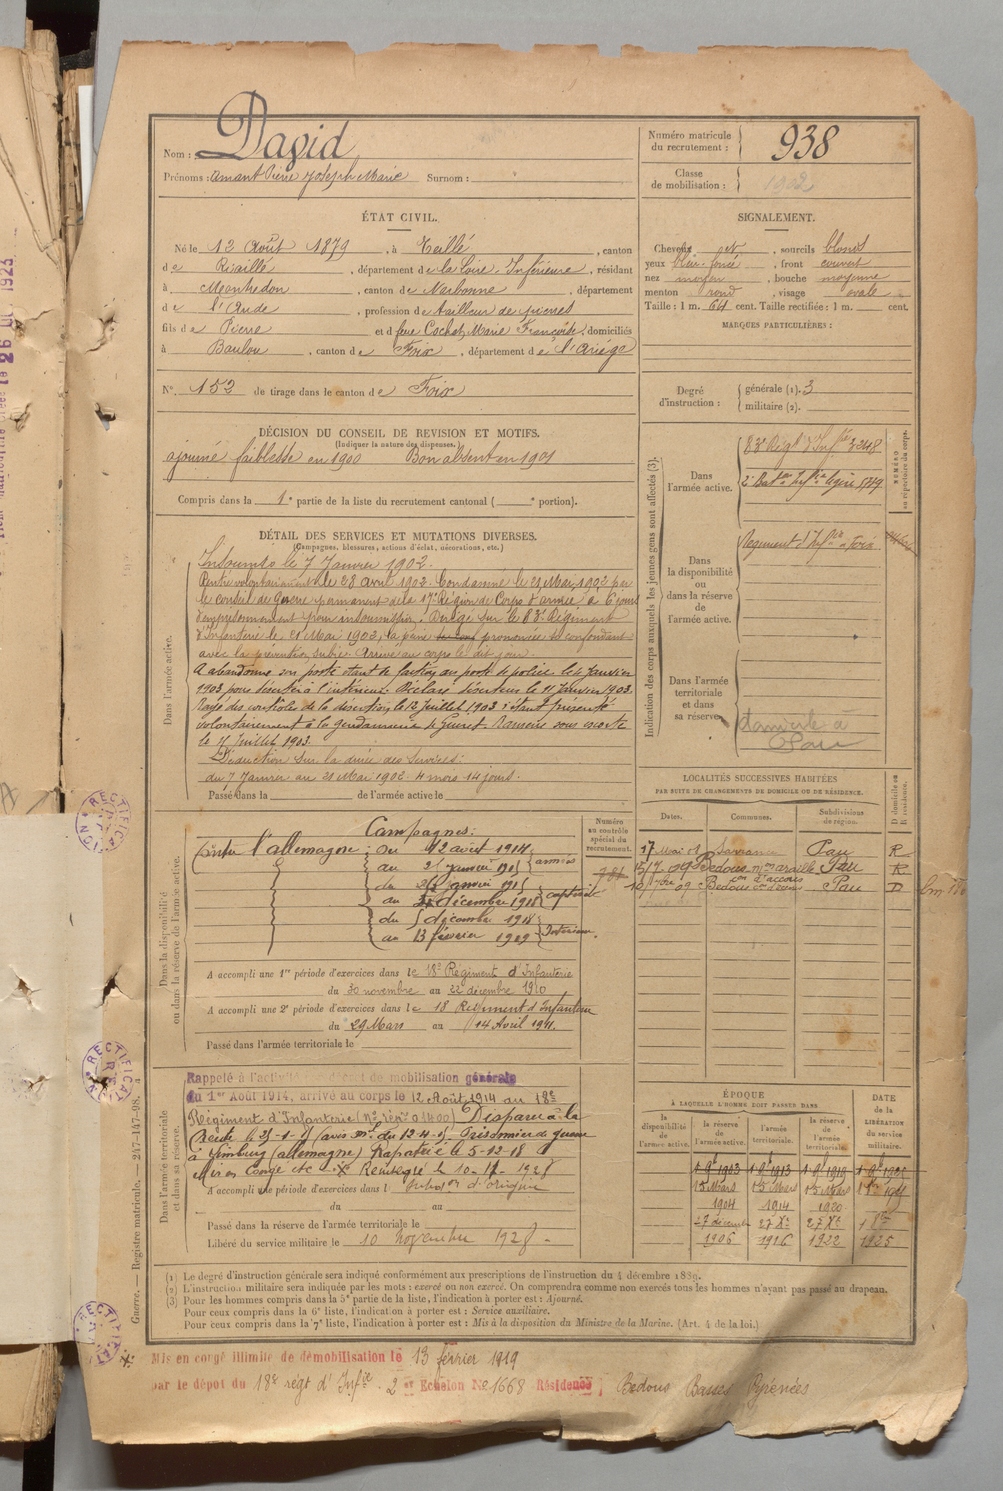 Nom : David
Prénoms : Amant Pierre Joseph Marie Surnom : "
Numéro matricule
du recrutement : 938
Classe
de mobilisation : 1902
ÉTAT CIVIL.
Né le 12 Août 1879, à Teillé, canton
de Riaillé, département de la Loire-Inférieure, résidant
à Montredon, canton de Narbonne, département
de l'Aude, profession de tailleur de pierres
fils de Pierre et de feue Cochet, Marie Françoise, domiciliés
à Baulou, canton de Foix, département de l'Ariège
N° 152 de tirage dans le canton de Foix
SIGNALEMENT.
Cheveux et, sourcils blonds
yeux bleu-foncé, front couvert
nez moyen, bouche moyenne
menton rond, visage ovale.
Taille : 1 m. 64 cent. Taille rectifiée : 1 m. cent.
MARQUES PARTICULIÈRES :
Degré
d'instruction :
générale (1). 3
militaire (2).
DÉCISION DU CONSEIL DE REVISION ET MOTIFS.
(Indiquer la nature des dispenses.)
ajourné faiblesse en 1900 Bon absent en 1901
Compris dans la 1e partie de la liste du recrutement cantonal ( e portion).
DÉTAIL DES SERVICES ET MUTATIONS DIVERSES.
(Campagnes, blessures, actions d'éclat, décorations, etc.)
Dans l'armée active.
Insoumis le 7 Janvier 1902.
Rentré volontairement le 28 Avril 1902. Condamné le 21 Mai 1902 par
le conseil de Guerre permanent de la 17e Région de Corps d'armée à 6 jours
d'emprisonnement pour insoumission. Dirigé sur le 83e Régiment
d'Infanterie le 21 Mai 1902, la peine prononcée se confondant
avec la prévention subie. Arrivé au corps le dit jour.
A abandonné son poste étant de faction au poste de police le 4 Janvier
1903 pour déserter à l'intérieur. Déclaré déserteur le 11 Janvier 1903.
Rayé des contrôles de la désertion le 12 Juillet 1903 s'étant présenté
volontairement à la gendarmerie de Ramené sous escorte
le 17 Juillet 1903.
Déduction sur la durée des Services :
du 7 Janvier au 21 Mai 1902 4 mois 14 jours.
Passé dans la de l'armée active le
Indication des corps auxquels les jeunes gens sont affectés (3).
NUMÉRO
au répertoire du corps.
Dans
l'armée active.
83e Régt d'Infie 3248
2e Baton d'Infie légère 5719
Dans
la disponibilité
ou
dans la réserve
de
l'armée active.
Régiment d'Infie à Foix
Dans l'armée
territoriale
et dans
sa réserve.
domicile à
Pau
LOCALITÉS SUCCESSIVES HABITÉES
PAR SUITE DE CHANGEMENTS DE DOMICILE OU DE RÉSIDENCE.
Dates. Communes. Subdivisions
de région. D domicile ou
R résidence.
17 Mai 08 Sarrance Pau R
15/7. 09 Bedous Pau R
10/7bre 09 Bedous Pau D
Dans la disponibilité
ou dans la réserve de l'armée active.
Numéro
au contrôle
spécial du
recrutement.
Campagnes :
Contre l'allemagne : du 12 août 1914
au 25 janvier 1915 armées
du 26 janvier 1915
au 4 décembre 1918 captivité
du 5 décembre 1918
au 13 février 1919 Intérieur.
A accompli une 1re période d'exercices dans le 18e Régiment d'Infanterie
du 30 novembre au 22 décembre 1910
A accompli une 2e période d'exercices dans le 18 Régiment d'Infanterie
du 29 Mars au 14 Avril 1911.
Passé dans l'armée territoriale le
Dans l'armée territoriale
et dans sa réserve.
Rappelé à l'activité décret de mobilisation générale
du 1er Août 1914, arrivé au corps le 12 Août 1914 au 18e
Régiment d'Infanterie Disparu à la
Creute le 25-1-15 (avis ml du 12-4-15 Prisonnier de guerre
à Limburg (allemagne) Rapatrié le 5-12-18
Mis en Congé etc
A accompli une période d'exercices dans l
du au
Passé dans la réserve de l'armée territoriale le
Libéré du service militaire le 10 novembre 1928.
ÉPOQUE
À LAQUELLE L'HOMME DOIT PASSER DANS
la
disponibilité
de
l'armée active.
la réserve
de
l'armée active.
l'armée
territoriale.
la réserve
de
l'armée
territoriale.
DATE
de la
LIBÉRATION
du service
militaire.
1 9bre 1903 1 9bre 1913 1 9bre 1919
15 Mars 15 Mars 15 Mars
1904 1914 1920
27 décembre 27 Xe 27 Xe 1 8bre
1906 1916 1922 1925
(1) Le degré d'instruction générale sera indiqué conformément aux prescriptions de l'instruction du 4 décembre 1889.
(2) L'instruction militaire sera indiquée par les mots : exercé ou non exercé. On comprendra comme non exercés tous les hommes n'ayant pas passé au drapeau.
(3) Pour les hommes compris dans la 5e partie de la liste, l'indication à porter est : Ajourné.
Pour ceux compris dans la 6e liste, l'indication à porter est : Service auxiliaire.
Pour ceux compris dans la 7e liste, l'indication à porter est : Mis à la disposition du Ministre de la Marine. (Art. 4 de la loi.)
Guerre. — Registre matricule. — 247-147-98.
RECTIFICATION
Mis en congé illimité de démobilisation le 13 février 1919
par le dépot du 18e régt d'Infie. 2 et Echelon No 1668 Résidence Bedous Basses Pyrénées